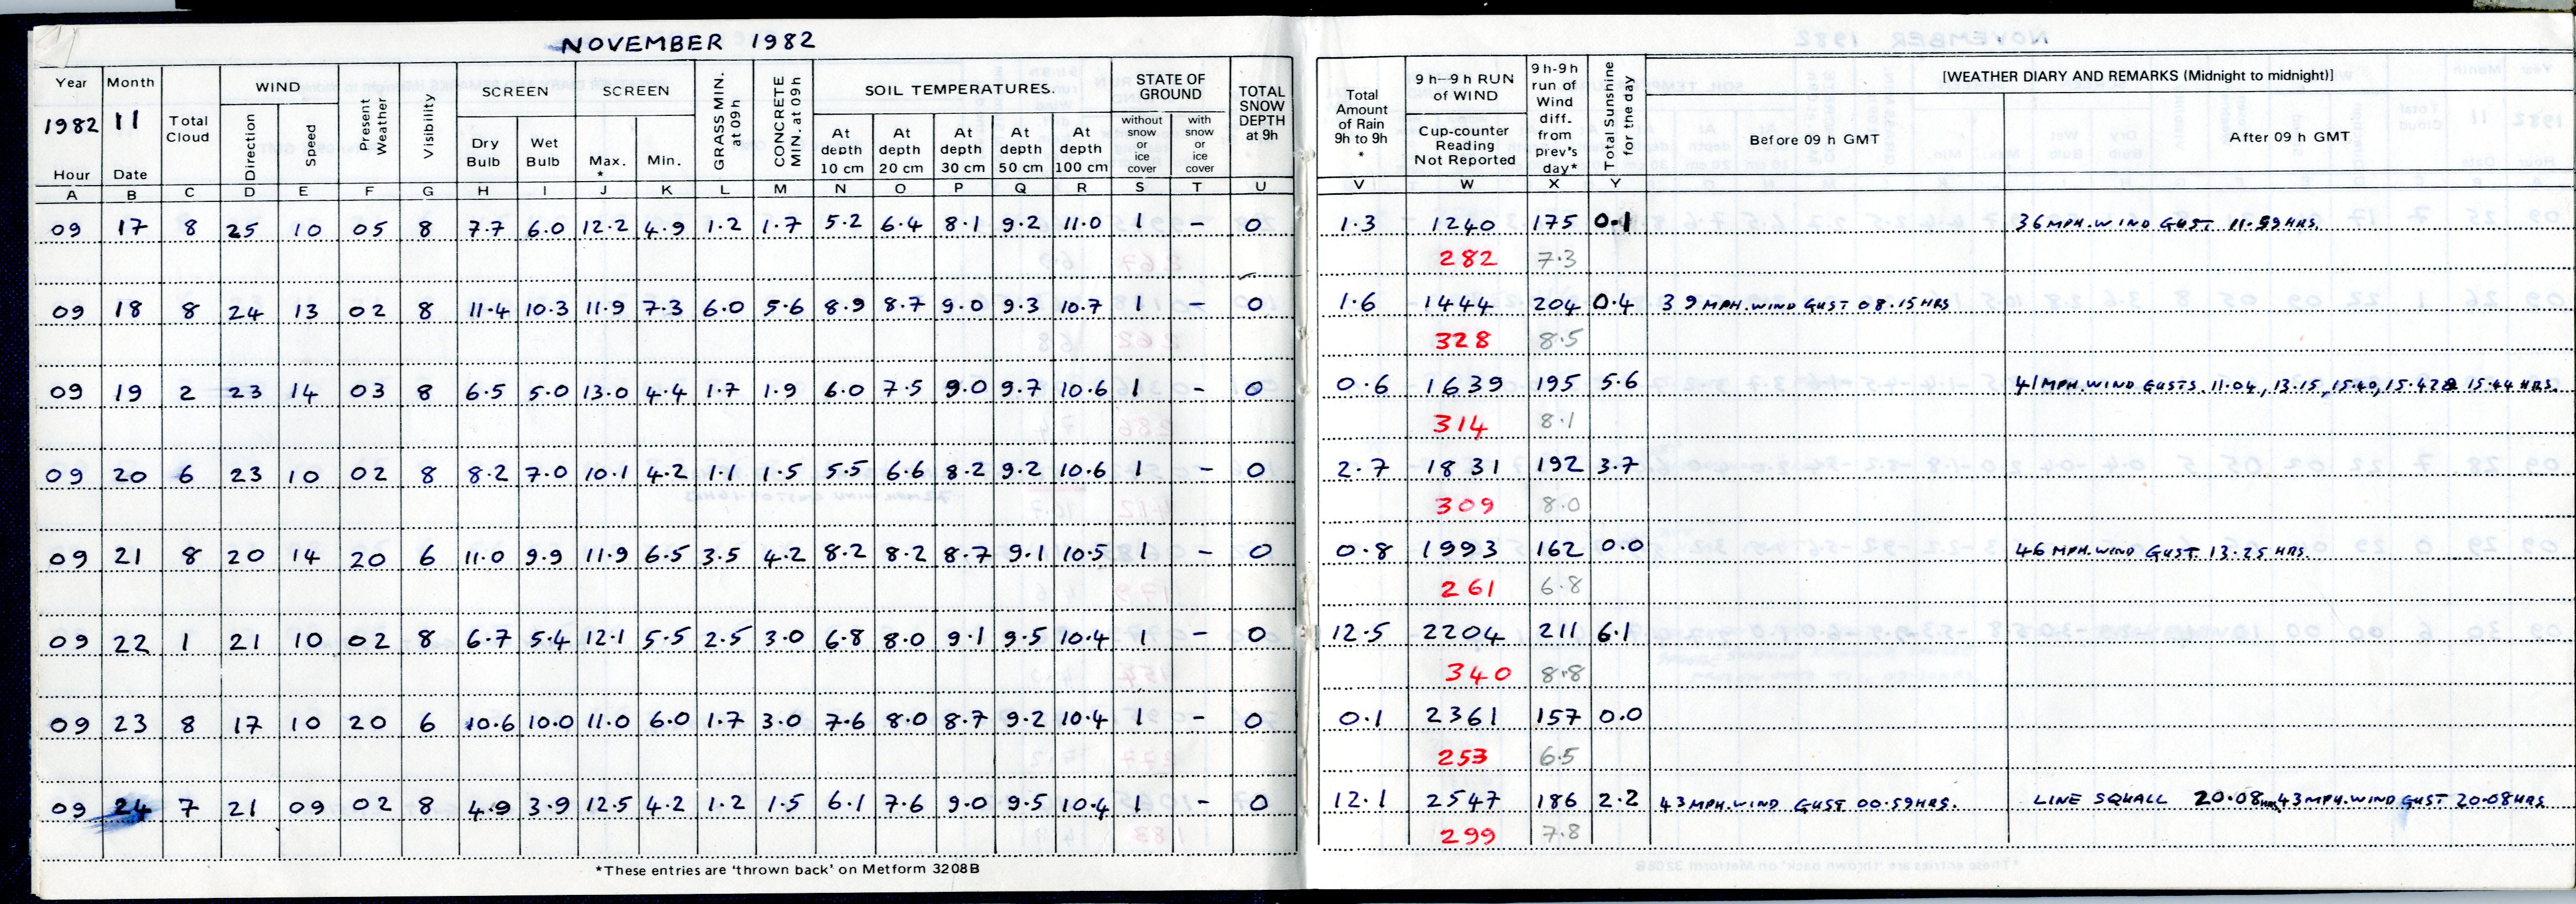 NOVEMBER 1982
Year Month Total Cloud WIND Present Weather Visibility SCREEN SCREEN GRASS MIN. at 09h CONCRETE MIN. at 09h SOIL TEMPERATURES. STATE OF GROUND TOTAL SNOW DEPTH at 9h Total Amount of Rain 9h to 9h * 9h--9h RUN of WIND 9h-9h run of Wind diff. from prev's day* Total Sunshine for the day [WEATHER DIARY AND REMARKS (Midnight to midnight)]
1982 11 Direction Speed Dry Bulb Wet Bulb Max. * Min. At depth 10 cm At depth 20 cm At depth 30 cm At depth 50 cm At depth 100 cm without snow or ice cover with snow or ice cover Cup-counter Reading Not Reported Before 09 h GMT After 09 h GMT
Hour Date
A B C D E F G H I J K L M N O P Q R S T U V W X Y
09 17 8 25 10 05 8 7.7 6.0 12.2 4.9 1.2 1.7 5.2 6.4 8.1 9.2 11.0 1 – 0 1.3 1240 175 0.1 36 MPH. WIND GUST 11.59 HRS.
282 7.3
09 18 8 24 13 02 8 11.4 10.3 11.9 7.3 6.0 5.6 8.9 8.7 9.0 9.3 10.7 1 – 0 1.6 1444 204 0.4 39 MPH. WIND GUST 08.15 HRS
328 8.5
09 19 2 23 14 03 8 6.5 5.0 13.0 4.4 1.7 1.9 6.0 7.5 9.0 9.7 10.6 1 – 0 0.6 1639 195 5.6 41 MPH. WIND GUSTS. 11.04, 13.15, 15.40, 15.42 & 15.44 HRS.
314 8.1
09 20 6 23 10 02 8 8.2 7.0 10.1 4.2 1.1 1.5 5.5 6.6 8.2 9.2 10.6 1 – 0 2.7 1831 192 3.7
309 8.0
09 21 8 20 14 20 6 11.0 9.9 11.9 6.5 3.5 4.2 8.2 8.2 8.7 9.1 10.5 1 – 0 0.8 1993 162 0.0 46 MPH. WIND GUST 13.25 HRS.
261 6.8
09 22 1 21 10 02 8 6.7 5.4 12.1 5.5 2.5 3.0 6.8 8.0 9.1 9.5 10.4 1 – 0 12.5 2204 211 6.1
340 8.8
09 23 8 17 10 20 6 10.6 10.0 11.0 6.0 1.7 3.0 7.6 8.0 8.7 9.2 10.4 1 – 0 0.1 2361 157 0.0
253 6.5
09 24 7 21 09 02 8 4.9 3.9 12.5 4.2 1.2 1.5 6.1 7.6 9.0 9.5 10.4 1 – 0 12.1 2547 186 2.2 43 MPH. WIND GUST 00.59 HRS. LINE SQUALL 20.08 HRS 43 MPH. WIND GUST 20.08 HRS
299 7.8
*These entries are 'thrown back' on Metform 3208B